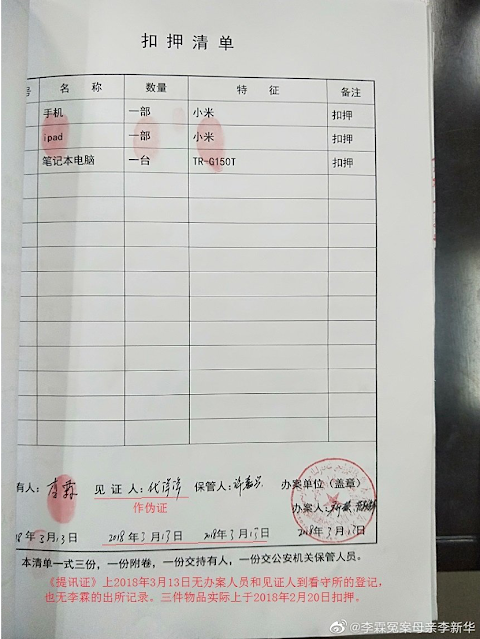 扣押清单
号 名 称 数量 特 征 备注
手机 一部 小米 扣押
ipad 一部 小米 扣押
笔记本电脑 一台 TR-G150T 扣押
有人：李霖 见证人： 保管人： 办案单位（盖章）
作伪证 办案人：
8年3月13日 2018年3月13日 2018年3月13日 2018年3月13日
本清单一式三份，一份附卷，一份交持有人，一份交公安机关保管人员。
《提讯证》上2018年3月13日无办案人员和见证人到看守所的登记，
也无李霖的出所记录。三件物品实际上于2018年2月20日扣押。
@李霖冤案母亲李新华